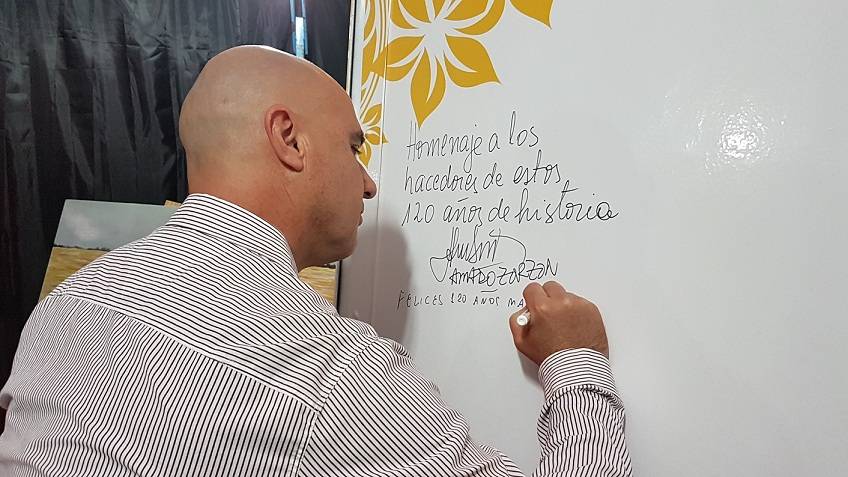 Homenaje a los
hacedores de estos
120 años de historia
AMADO ZORZON
FELICES 120 AÑOS MA